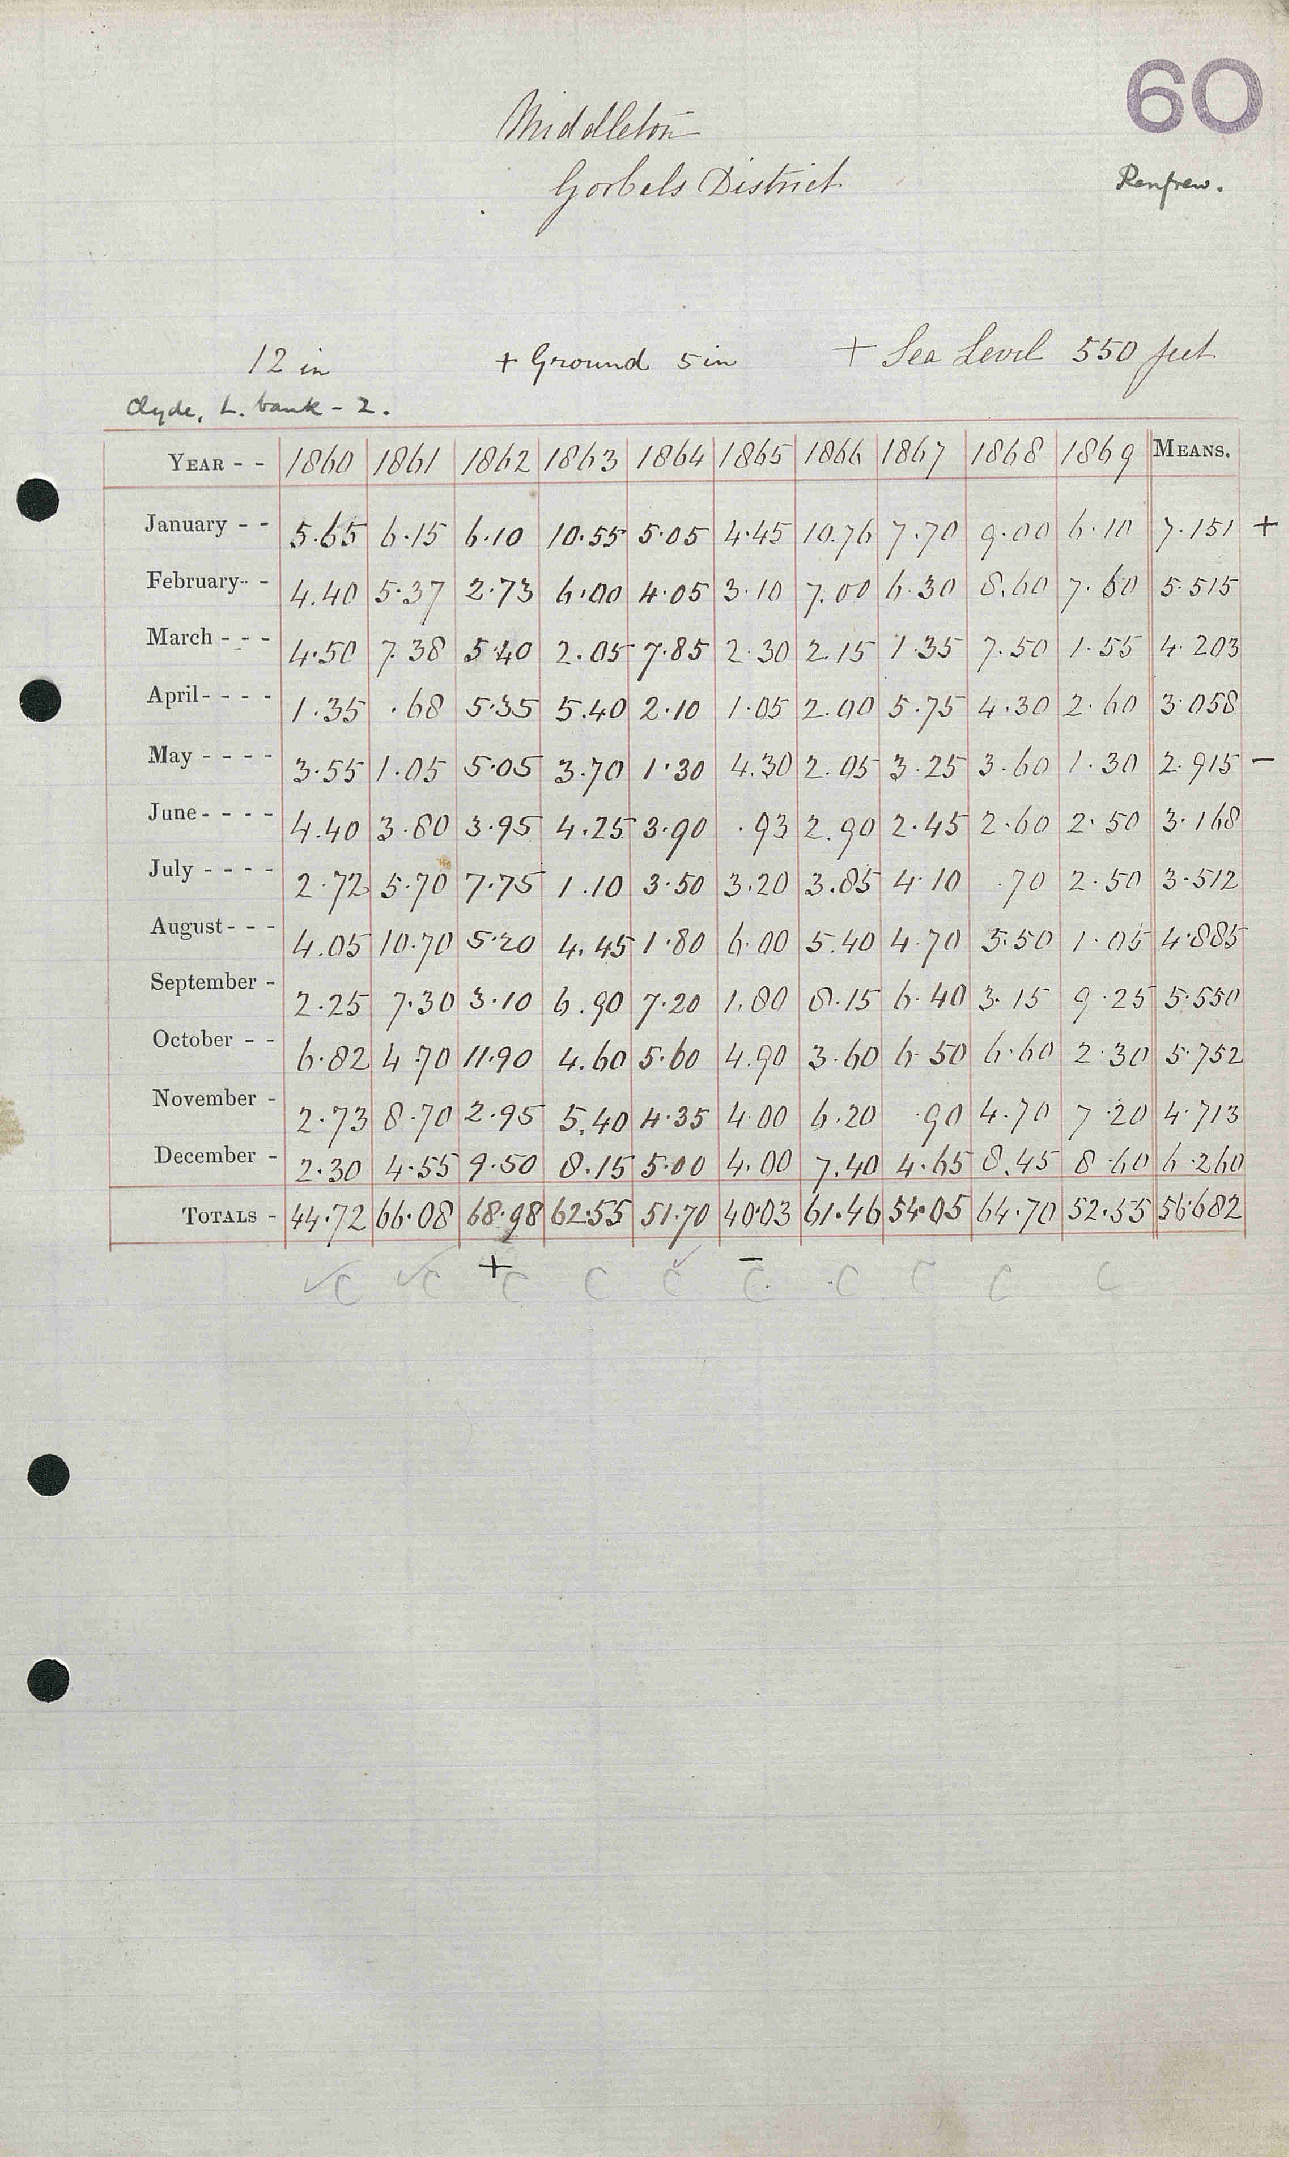 60
Middleton
Gorbels District
Renfrew.
12 in + Ground 5 in + Sea Level 550 feet
Clyde, L. bank - 2.
YEAR - - 1860 1861 1862 1863 1864 1865 1866 1867 1868 1869 MEANS.
January - - 5.65 6.15 6.10 10.55 5.05 4.45 10.76 7.70 9.00 6.10 7.151 +
February - - 4.40 5.37 2.73 6.00 4.05 3.10 7.00 6.30 8.60 7.60 5.515
March - - - 4.50 7.38 5.40 2.05 7.85 2.30 2.15 1.35 7.50 1.55 4.203
April - - - - 1.35 .68 5.35 5.40 2.10 1.05 2.00 5.75 4.30 2.60 3.058
May - - - - 3.55 1.05 5.05 3.70 1.30 4.30 2.05 3.25 3.60 1.30 2.915 -
June - - - - 4.40 3.80 3.95 4.25 3.90 .93 2.90 2.45 2.60 2.50 3.168
July - - - - 2.72 5.70 7.75 1.10 3.50 3.20 3.85 4.10 .70 2.50 3.512
August - - - 4.05 10.70 5.20 4.45 1.80 6.00 5.40 4.70 5.50 1.05 4.885
September - 2.25 7.30 3.10 6.90 7.20 1.80 8.15 6.40 3.15 9.25 5.550
October - - 6.82 4.70 11.90 4.60 5.60 4.90 3.60 6.50 6.60 2.30 5.752
November - 2.73 8.70 2.95 5.40 4.35 4.00 6.20 .90 4.70 7.20 4.713
December - 2.30 4.55 9.50 8.15 5.00 4.00 7.40 4.65 8.45 8.60 6.260
TOTALS - 44.72 66.08 68.98 62.55 51.70 40.03 61.46 54.05 64.70 52.55 56.682
+ -
✓C ✓C C C C C C C C C